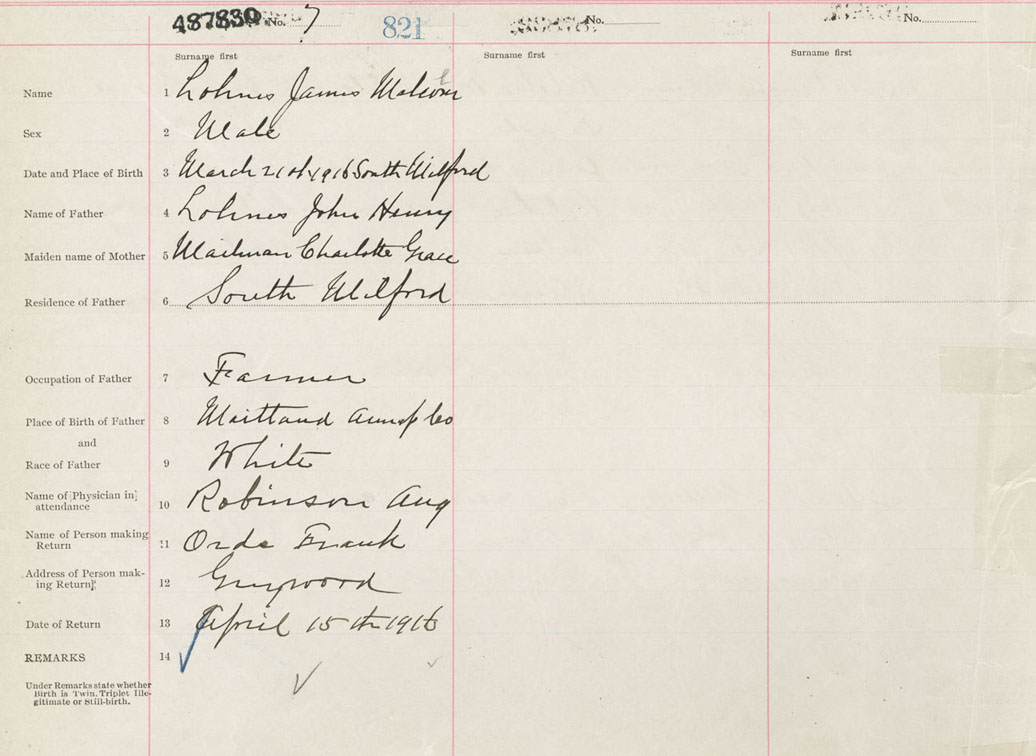 487830 No. 7 821 No. No.
Surname first Surname first Surname first
Name 1 Lohnes James Malcom
Sex 2 Male
Date and Place of Birth 3 March 21st 1916 South Milford
Name of Father 4 Lohnes John Henry
Maiden name of Mother 5 Mailman Charlotte Grace
Residence of Father 6 South Milford
Occupation of Father 7 Farmer
Place of Birth of Father 8 Maitland Annap Co
and
Race of Father 9 White
Name of [Physician in]
attendance 10 Robinson Aug
Name of Person making
Return 11 Orde Frank
Address of Person mak-
ing Return] 12 Greywood
Date of Return 13 April 15th 1916
REMARKS 14
Under Remarks state whether
Birth is Twin, Triplet Ille-
gitimate or Still-birth.